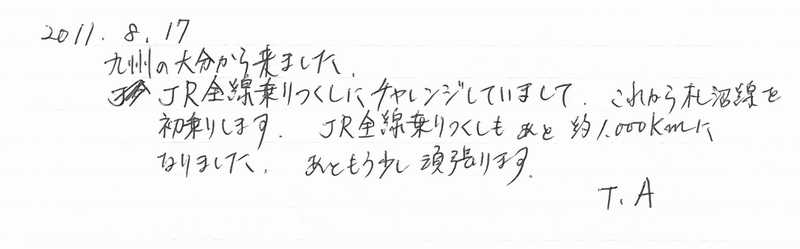 2011. 8. 17
九州の大分から来ました.
JR全線乗りつくしにチャレンジしていまして. これから札沼線を
初乗りします. JR全線乗りつくしも あと 約1.000Kmに
なりました. あともう少し 頑張ります.
T. A